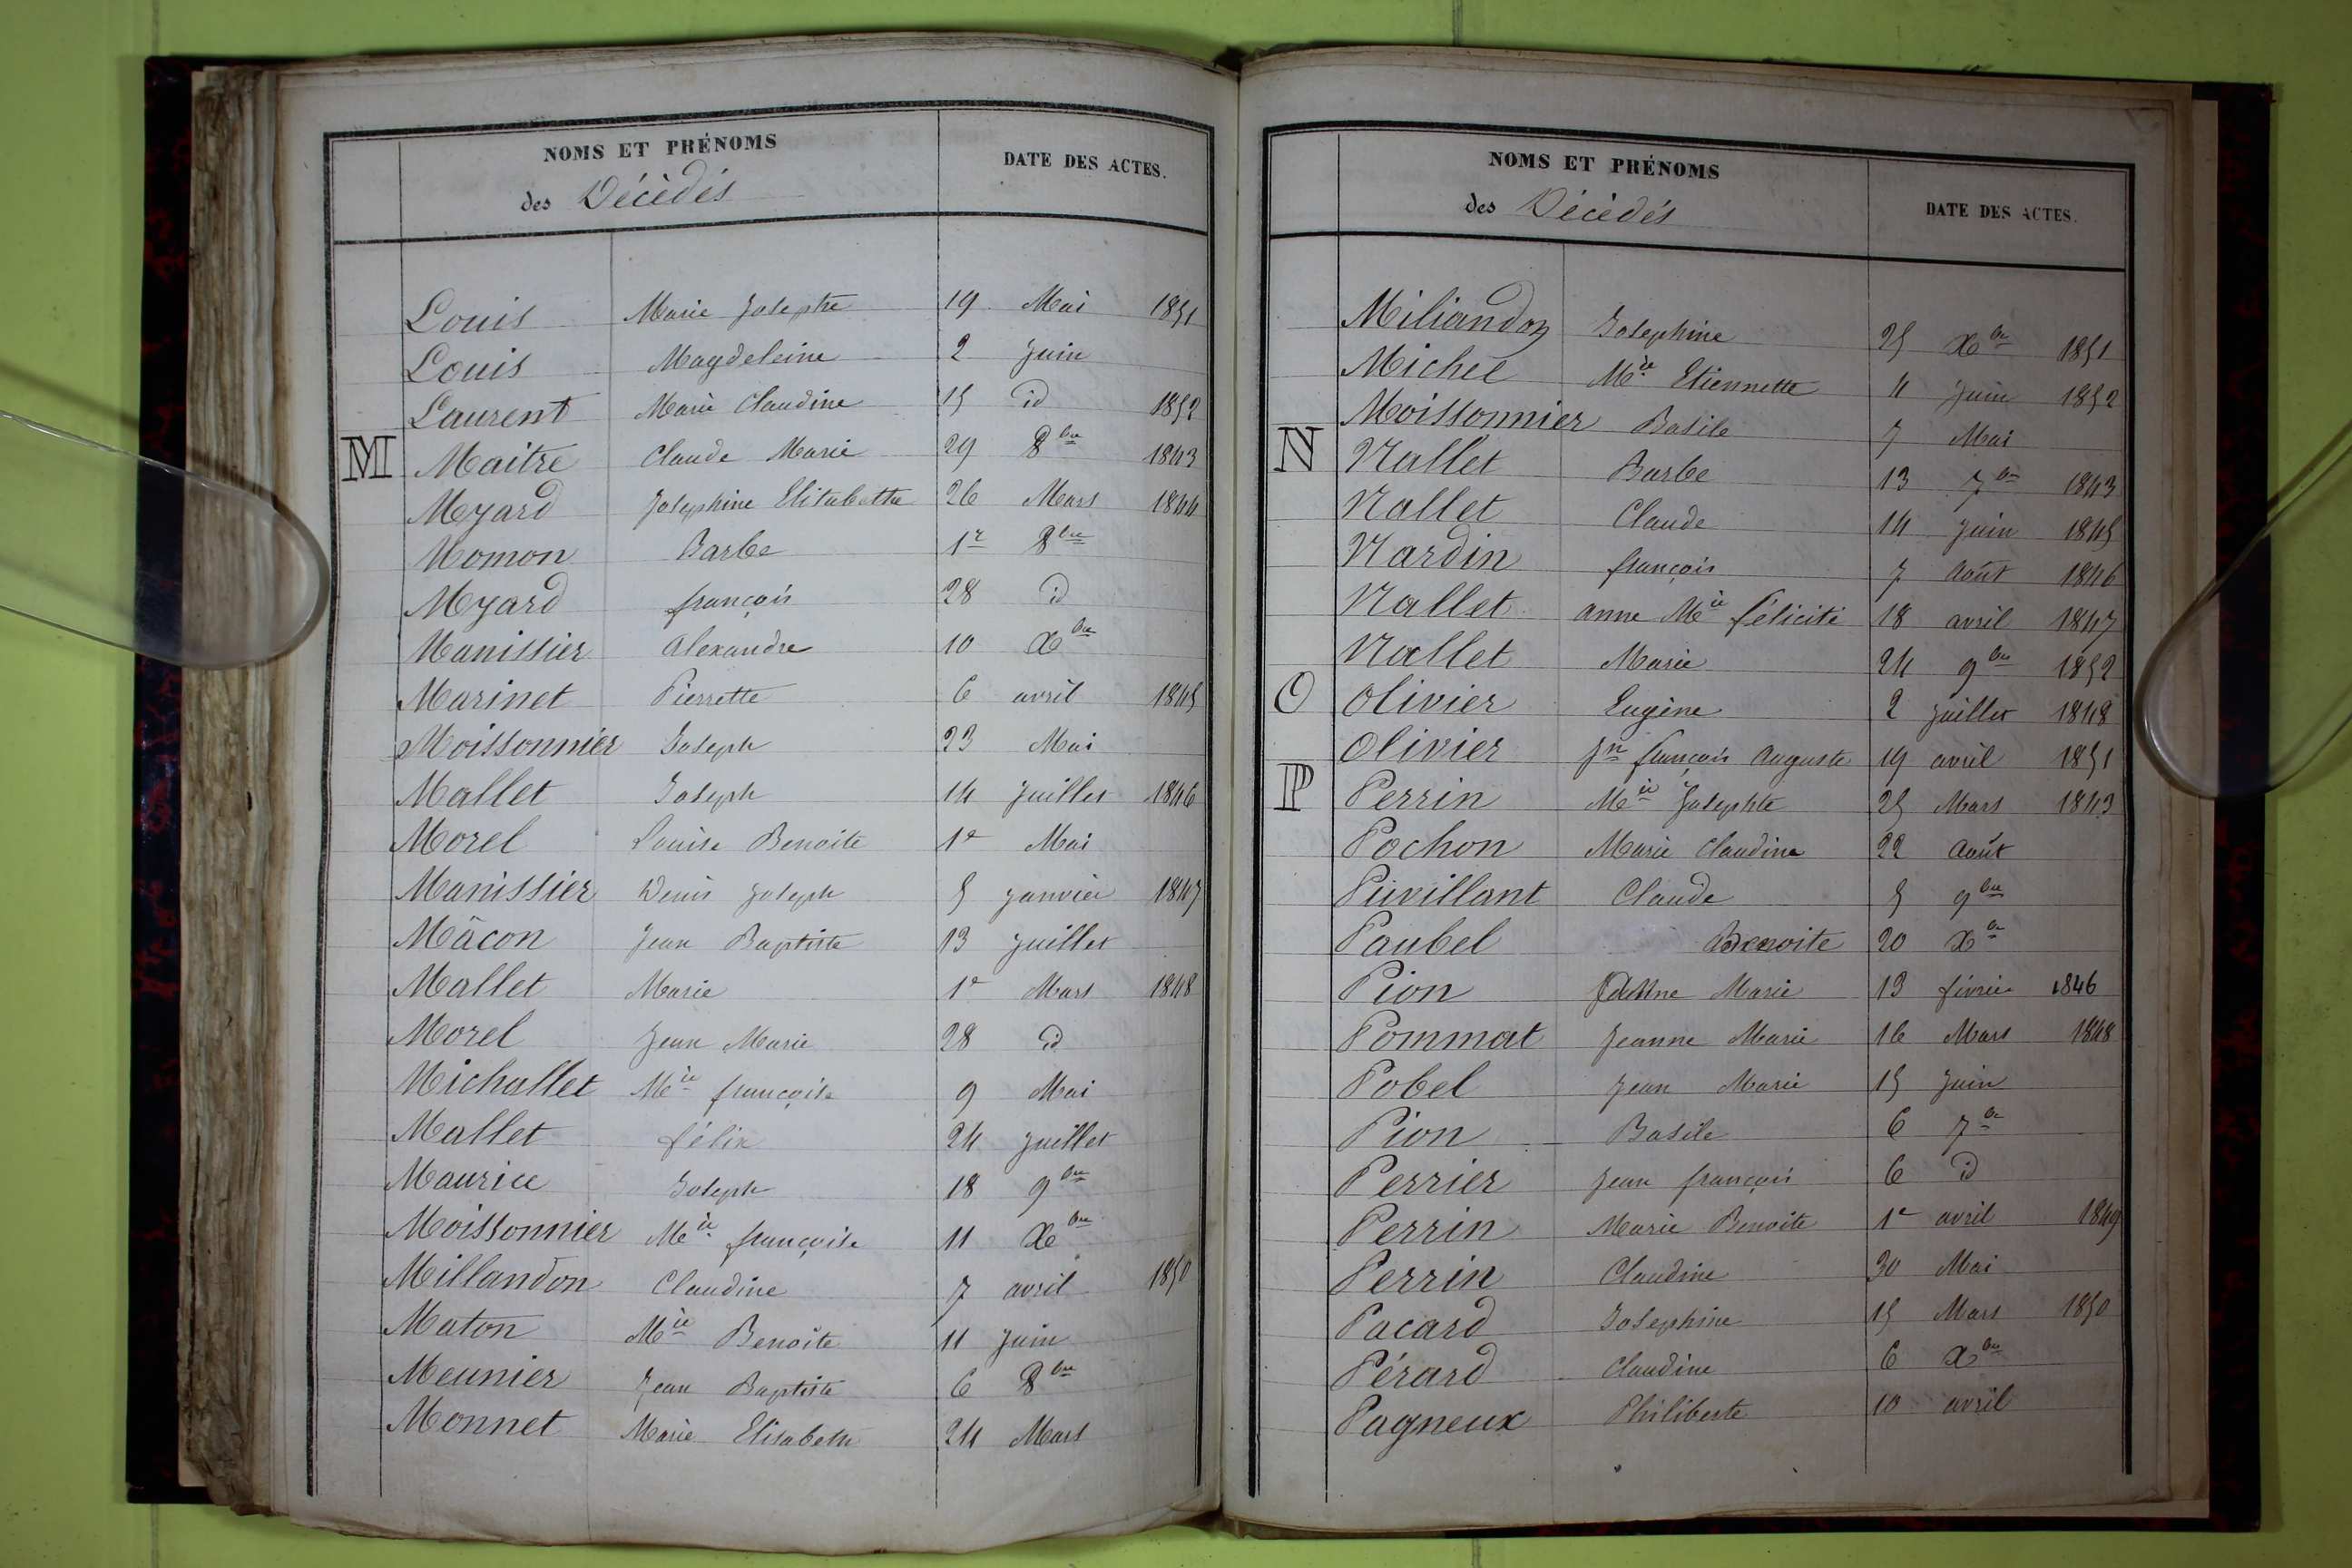 NOMS ET PRÉNOMS
des Décédés
DATE DES ACTES.
Louis Marie Josephe 19 Mai 1851
Louis Magdeleine 2 Juin
Laurent Marie Claudine 15 id 1852
M Maitre Claude Marie 29 8bre 1843
Myard Josephine Elisabethe 26 Mars 1844
Momon Barbe 1r 8bre
Myard françois 28 id
Manissier Alexandre 10 Xbre
Marinet Pierrette 6 avril 1845
Moissonnier Joseph 23 Mai
Mallet Joseph 14 Juillet 1846
Morel Louise Benoite 1r Mai
Manissier Denis Joseph 5 Janvier 1847
Mâcon Jean Baptiste 13 Juillet
Mallet Marie 1r Mars 1848
Morel Jean Marie 28 id
Michallet Mie françoise 9 Mai
Mallet félix 24 Juillet
Maurice Joseph 18 9bre
Moissonnier Mie françoise 11 Xbre
Millandon Claudine 7 avril 1850
Maton Mie Benoite 11 Juin
Meunier Jean Baptiste 6 8bre
Monnet Marie Elisabeth 24 Mars
NOMS ET PRÉNOMS
des Décédés
DATE DES ACTES.
Miliandon Josephine 25 Xbre 1851
Michel Mie Etiennette 4 Juin 1852
Moissonnier Basile 7 Mai
N Nallet Barbe 13 7bre 1843
Nallet Claude 14 Juin 1845
Nardin françois 7 Août 1846
Nallet anne Mie félicité 18 avril 1847
Nallet Marie 24 9bre 1852
O Olivier Eugène 2 Juillet 1848
Olivier Jn françois Auguste 19 avril 1851
P Perrin Mie Josephte 25 Mars 1843
Pochon Marie Claudine 22 Août
Puvillant Claude 5 9bre
Paubel Benoite 20 Xbre
Pion Marie 13 février 1846
Pommat Jeanne Marie 16 Mars 1848
Pobel Jean Marie 15 Juin
Pion Basile 6 7bre
Perrier Jean françois 6 id
Perrin Marie Benoite 1r avril 1849
Perrin Claudine 30 Mai
Pacard Josephine 15 Mars 1850
Pérard Claudine 6 Xbre
Pagneux Philiberte 10 avril